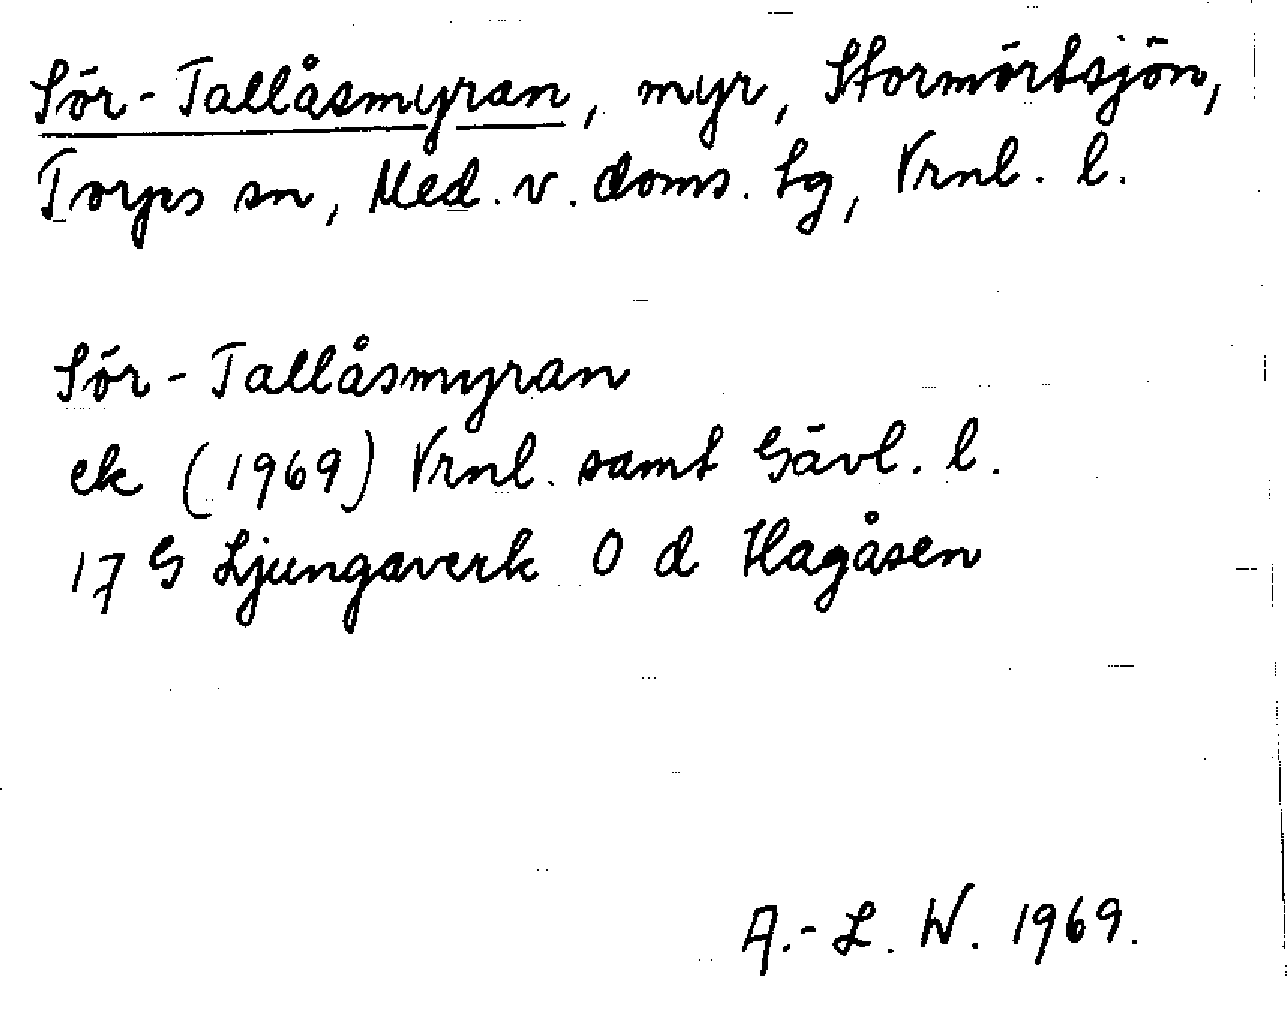 Sör-Tallåsmyran, myr, Stormörtsjön,
Torps sn, Med. v. doms. tg, Vrnl. l.
Sör-Tallåsmyran
ek (1969) Vrnl. samt Gävl. l.
17 G Ljungaverk O d Hagåsen
A.-L. W. 1969.